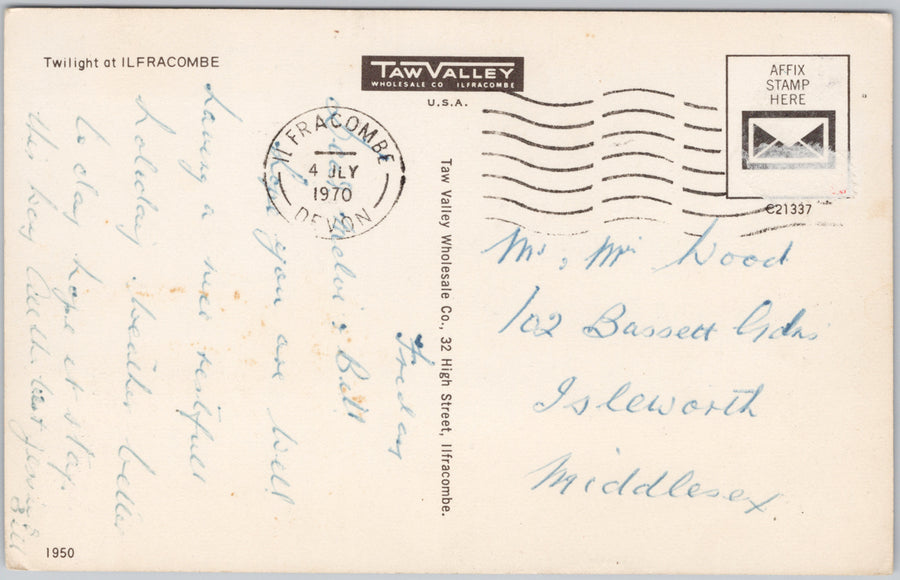 Twilight at ILFRACOMBE
TAW VALLEY
WHOLESALE CO ILFRACOMBE
U.S.A.
AFFIX
STAMP
HERE
C21337
ILFRACOMBE
4 JLY
1970
DEVON
Taw Valley Wholesale Co., 32 High Street, Ilfracombe.
Friday
Dear & Bill
Hope you are well
having a nice restfull
holiday. Weather better
to day hope it stays
this way
Bill
Mr & Mrs Wood
102 Bassett Gdns
Isleworth
Middlesex
1950